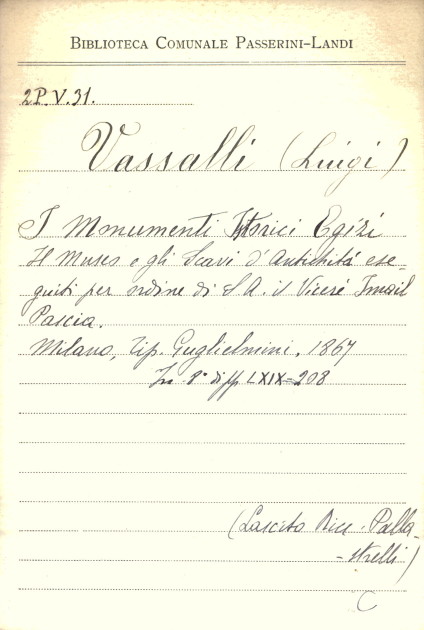 BIBLIOTECA COMUNALE PASSERINI-LANDI
2P.V.31.
Vassalli (Luigi)
I Monumenti Istorici Egizi
Il Museo e gli Scavi d'Antichità ese-
guiti per ordine di S. A. il Vicerè Ismail
Pascia.
Milano, Tip. Guglielmini. 1867
In 8° di pp LXIX-208
(Lascito Palla-
-strelli)
C